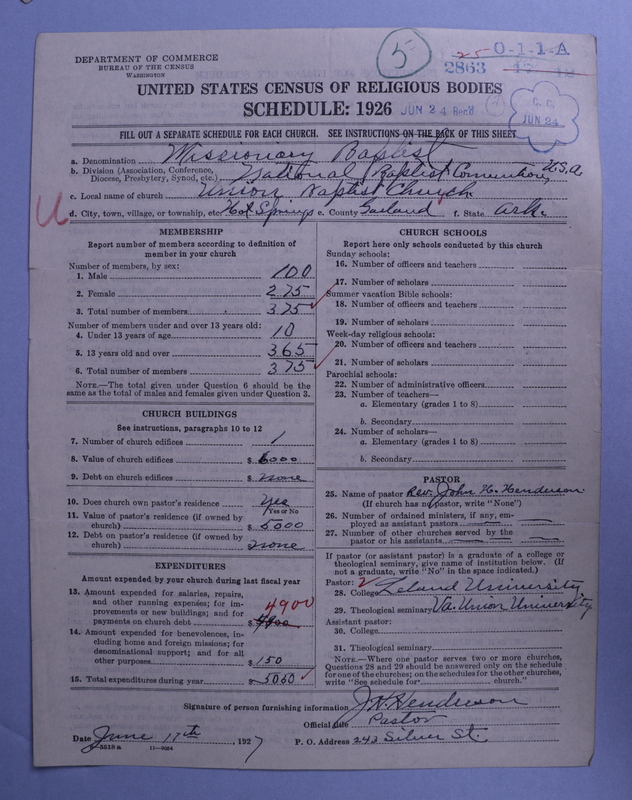 5
25 O-1-1-A
2863
DEPARTMENT OF COMMERCE
BUREAU OF THE CENSUS
WASHINGTON
UNITED STATES CENSUS OF RELIGIOUS BODIES
SCHEDULE: 1926 JUN 24 Rec'd
C.C.
JUN 24
FILL OUT A SEPARATE SCHEDULE FOR EACH CHURCH. SEE INSTRUCTIONS ON THE BACK OF THIS SHEET
a. Denomination Missionary Baptist
b. Division (Association, Conference, Diocese, Presbytery, Synod, etc.) National Baptist Convention, U.S.A
c. Local name of church Union Baptist Church
U d. City, town, village, or township, etc. Hot Springs e. County Garland f. State Ark.
MEMBERSHIP
Report number of members according to definition of
member in your church
Number of members, by sex:
1. Male 100
2. Female 275
3. Total number of members 375
Number of members under and over 13 years old:
4. Under 13 years of age 10
5. 13 years old and over 365
6. Total number of members 375
NOTE.—The total given under Question 6 should be the
same as the total of males and females given under Question 3.
CHURCH BUILDINGS
See instructions, paragraphs 10 to 12
7. Number of church edifices 1
8. Value of church edifices $ 6000
9. Debt on church edifices $ none
10. Does church own pastor's residence yes
Yes or No
11. Value of pastor's residence (if owned by
church) $ 5000
12. Debt on pastor's residence (if owned by
church) none
EXPENDITURES
Amount expended by your church during last fiscal year
13. Amount expended for salaries, repairs,
and other running expenses; for im-
provements or new buildings; and for 4900
payments on church debt $
14. Amount expended for benevolences, in-
cluding home and foreign missions; for
denominational support; and for all
other purposes $ 150
15. Total expenditures during year $ 5050
CHURCH SCHOOLS
Report here only schools conducted by this church
Sunday schools:
16. Number of officers and teachers
17. Number of scholars
Summer vacation Bible schools:
18. Number of officers and teachers
19. Number of scholars
Week-day religious schools:
20. Number of officers and teachers
21. Number of scholars
Parochial schools:
22. Number of administrative officers
23. Number of teachers—
a. Elementary (grades 1 to 8)
b. Secondary
24. Number of scholars—
a. Elementary (grades 1 to 8)
b. Secondary
PASTOR
25. Name of pastor Rev. John H. Henderson
(If church has no pastor, write "None")
26. Number of ordained ministers, if any, em-
ployed as assistant pastors
27. Number of other churches served by the
pastor or his assistants
If pastor (or assistant pastor) is a graduate of a college or
theological seminary, give name of institution below. (If
not a graduate, write "No" in the space indicated.)
Pastor:
28. College Leland University
29. Theological seminary Va. Union University
Assistant pastor:
30. College
31. Theological seminary
NOTE.—Where one pastor serves two or more churches,
Questions 28 and 29 should be answered only on the schedule
for one of the churches; on the schedules for the other churches,
write "See schedule for church."
Signature of person furnishing information J. H. Henderson
Official title Pastor
Date June 17th, 1927 P. O. Address 243 Silver St.
8-5518 a 11-9064